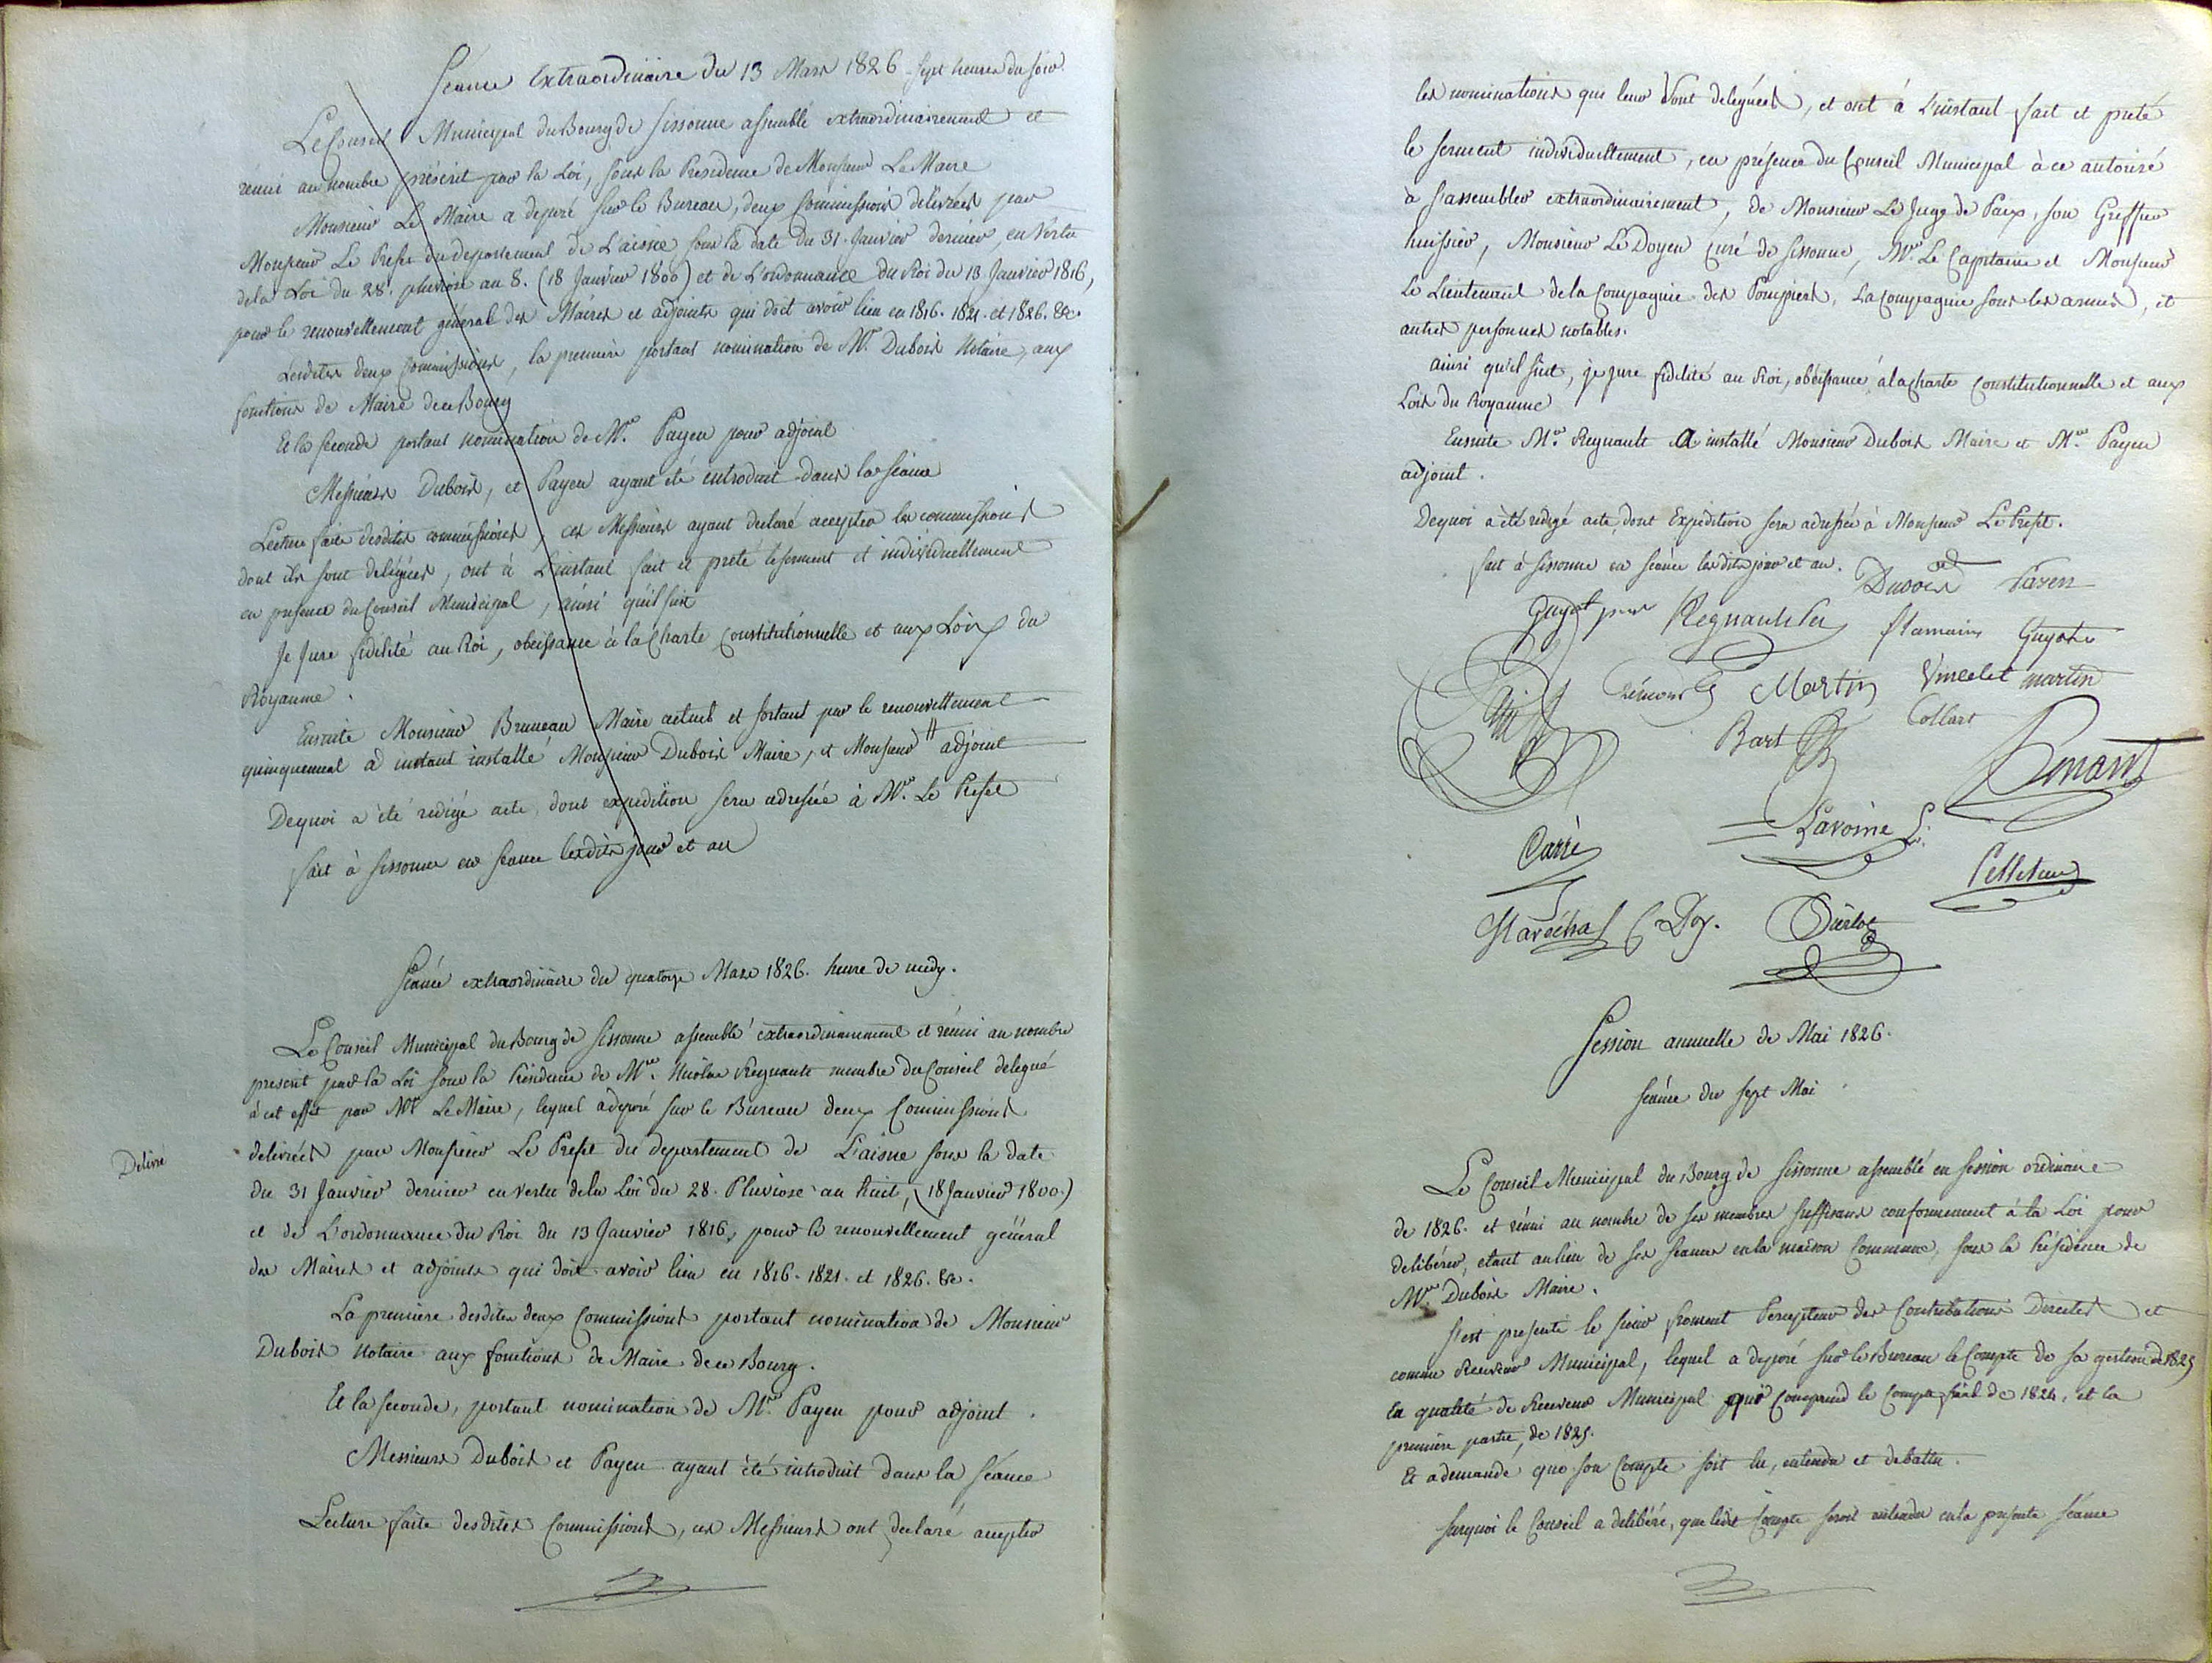 Séance Extraordinaire du 13 Mars 1826 sept heures du soir
Le Conseil Municipal du Bourg de Sissonne assemblé extraordinairement et
réuni au nombre préscrit par la Loi, sous la Presidence de Monsieur Le Maire
Monsieur Le Maire a deposé sur le Bureau, deux Commissions delivrées par
Monsieur Le Prefet du departement de L'aisne sous la date du 31. Janvier dernier, en Vertu
de la Loi du 28. pluviose an 8. (18 Janvier 1800) et de L'ordonnance du Roi du 13 Janvier 1816,
pour le renouvellement général des Maires et adjoints qui doit avoir lieu en 1816. 1821. et 1826. &c.
Lesdites deux Commissions, la premiere portant nomination de Mr. Dubois Notaire, aux
fonctions de Maire de ce Bourg
Et la seconde portant nomination de Mr. Payen pour adjoint
Messieurs Dubois, et Payen ayant été introduit dans la séance
Lecture faite desdites commissions, ces Messieurs ayant declaré accepter les commissions
dont ils sont delégués, ont à L'instant fait et prété le serment et individuellement
en presence du Conseil Municipal, ainsi qu'il suit
Je Jure fidelité au Roi, obeissance à la Charte constitutionnelle et aux Loix du
Royaume.
Ensuite Monsieur Bruneau Maire actuel et sortant par le renouvellement
quinquennal a instant installé Monsieur Dubois Maire, et Monsieur # adjoint
De quoi a été redigé acte, dont expedition sera adressée à Mr. Le Prefet
fait à Sissonne en séance lesdits jour et an
Séance extraordinaire du quatorze Mars 1826. heure de midy.
Le Conseil Municipal du Bourg de Sissonne assemblé extraordinairement et réuni au nombre
prescrit par la Loi sous la Présidence de Mr. Nicolas Regnault membre du Conseil delegué
à cet effet par Mr. Le Maire, lequel a deposé sur le Bureau deux Commissions
Delivré
delivrées par Monsieur Le Prefet du departement de L'aisne sous la date
du 31 Janvier dernier en vertu de la Loi du 28. Pluviose an huit, (18 Janvier 1800.)
et de L'ordonnance du Roi du 13 Janvier 1816, pour le renouvellement général
des Maires et adjoints qui doit avoir lieu en 1816. 1821. et 1826. &c.
La premiere desdites deux Commissions portant nomination de Monsieur
Dubois Notaire aux fonctions de Maire de ce Bourg.
Et la seconde, portant nomination de Mr. Payen pour adjoint.
Messieurs Dubois et Payen ayant été introduit dans la séance
Lecture faite desdites Commissions, ces Messieurs ont declaré accepter
les nominations qui leur sont deleguées, et ont à L'instant fait et preté
le serment individuellement, en présence du Conseil Municipal à ce autorisé
à s'assembler extraordinairement, de Monsieur Le Juge de Paix, son Greffier
huissier, Monsieur Le Doyen Curé de Sissonne, Mr. Le Capitaine et Monsieur
Le Lieutenant de la Compagnie des Pompiers, La Compagnie sous les armes, et
autres personnes notables.
ainsi qu'il suit, je jure fidelité au Roi, obéissance à la Charte Constitutionnelle et aux
Lois du Royaume
Ensuite Mr. Regnault a installé Monsieur Dubois Maire et Mr. Payen
adjoint.
De quoi a été redigé acte, dont Expédition sera adressée à Monsieur Le Prefet.
fait à Sissonne en séance lesdits jour et an.
Dubois Payen
Guyot Regnault Flamain Guyot
Martin Vincelet martin
Bart Collart
Carré Lavoine
Pelletier
Maréchal
Session annuelle de Mai 1826.
séance du sept Mai
Le Conseil Municipal du Bourg de Sissonne assemblé en session ordinaire
de 1826. et réuni au nombre de ses membres suffisant conformement à la Loi pour
delibérer, etant au lieu de ses seances en la maison Commune, sous la Présidence de
Mr. Dubois Maire.
S'est presenté le sieur froment Percepteur des Contributions Directes et
comme Receveur Municipal, lequel a deposé sur le Bureau le Compte de sa gestion de 1825
En qualité de Receveur Municipal qui comprend le Compte final de 1824, et la
premiere partie, de 1825.
Et a demandé que son Compte soit lu, entendu et debattu.
Surquoi le Conseil a delibéré, que ledit Compte seroit entendu en la presente séance